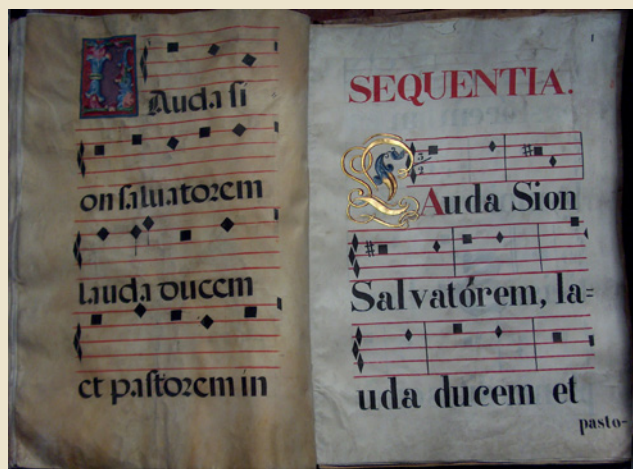 LAuda si
on saluatorem
lauda ducem
et pastorem in
SEQUENTIA.
LAuda Sion
Salvatórem, la=
uda ducem et
pasto-